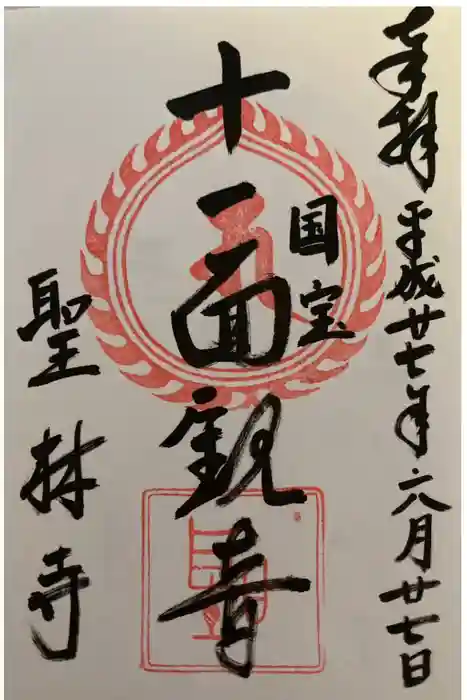 奉拝 平成廿七年六月廿七日
国宝
十一面観音
聖林寺